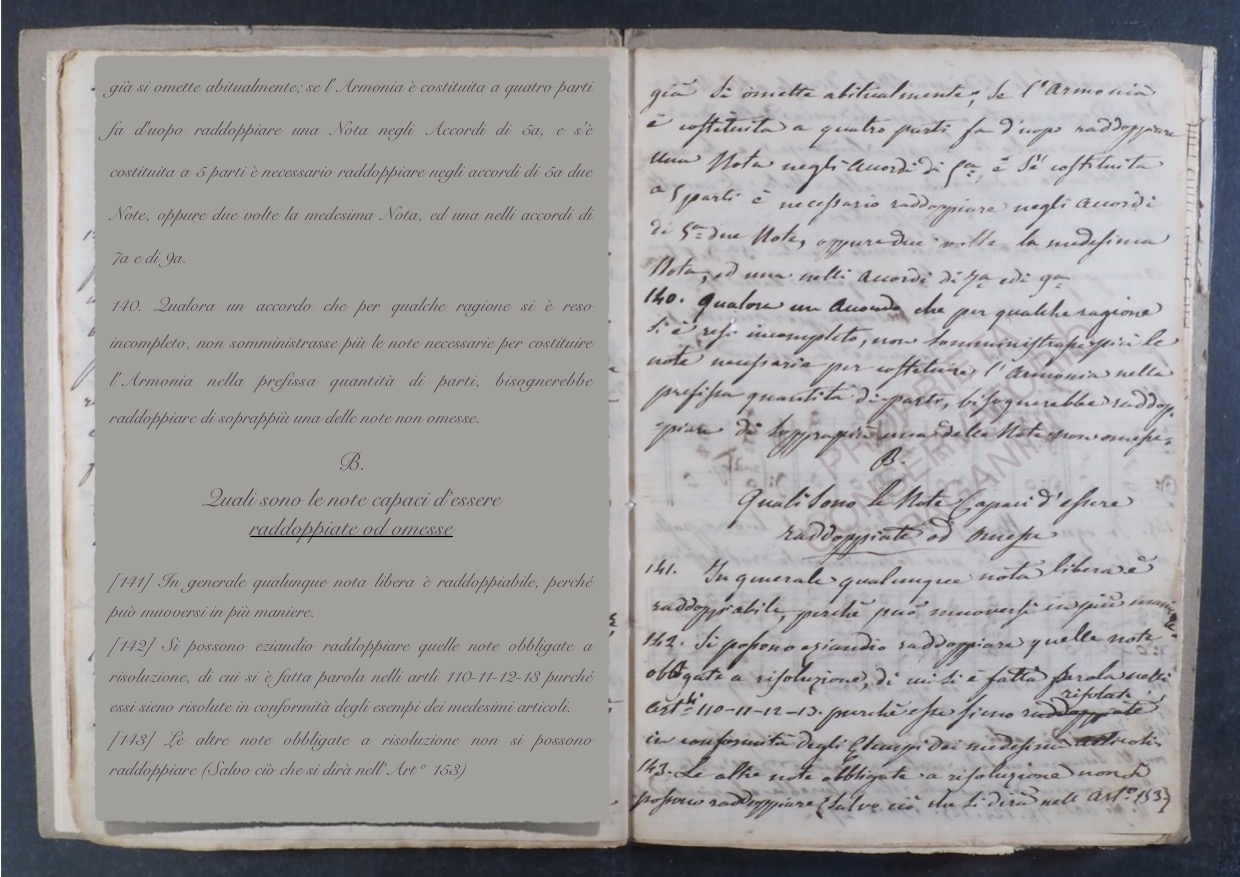 già si omette abitualmente; se l'Armonia è costituita a quatro parti
fa d'uopo raddoppiare una Nota negli Accordi di 5a, e s'è
costituita a 5 parti è necessario raddoppiare negli accordi di 5a due
Note, oppure due volte la medesima Nota, ed una nelli accordi di
7a e di 9a.
140. Qualora un accordo che per qualche ragione si è reso
incompleto, non somministrasse più le note necessarie per costituire
l'Armonia nella prefissa quantità di parti, bisognerebbe
raddoppiare di soprappiù una delle note non omesse.
B.
Quali sono le note capaci d'essere
raddoppiate od omesse
[141] In generale qualunque nota libera è raddoppiabile, perché
può muoversi in più maniere.
[142] Si possono eziandio raddoppiare quelle note obbligate a
risoluzione, di cui si è fatta parola nelli artli 110-11-12-13 purché
essi sieno risolute in conformità degli esempi dei medesimi articoli.
[143] Le altre note obbligate a risoluzione non si possono
raddoppiare (Salvo ciò che si dirà nell'Artº 153)
già si omette abitualmente; se l'Armonia
è costituita a quatro parti fa d'uopo raddoppiare
una Nota negli Accordi di 5a, e s'è costituita
a 5 parti è necessario raddoppiare negli accordi
di 5a due Note, oppure due volte la medesima
Nota, ed una nelli accordi di 7a e di 9a
140. Qualora un Accordo che per qualche ragione
si è reso incompleto, non somministrasse più le
note necessarie per costituire l'Armonia nella
prefissa quantità di parti, bisognerebbe raddop-
piare di soprapiù una delle Note non omesse.
B.
Quali sono le Note Capaci d'essere
raddoppiate od omesse
141. In generale qualunque nota libera è
raddoppiabile, perché può muoversi in più manie
142. Si possono eziandio raddoppiare quelle note
obbligate a risoluzione, di cui si è fatta parola nelli
risolute
Artli 110-11-12-13. purché esse sieno raddoppiate
in conformità degli Esempi dei medesimi articoli.
143. Le altre note obbligate a risoluzione non si
possono raddoppiare (Salvo ciò che si dirà nell Arto 153)
PROPRIETÀ
CONSERVATORIO
PAGANINI